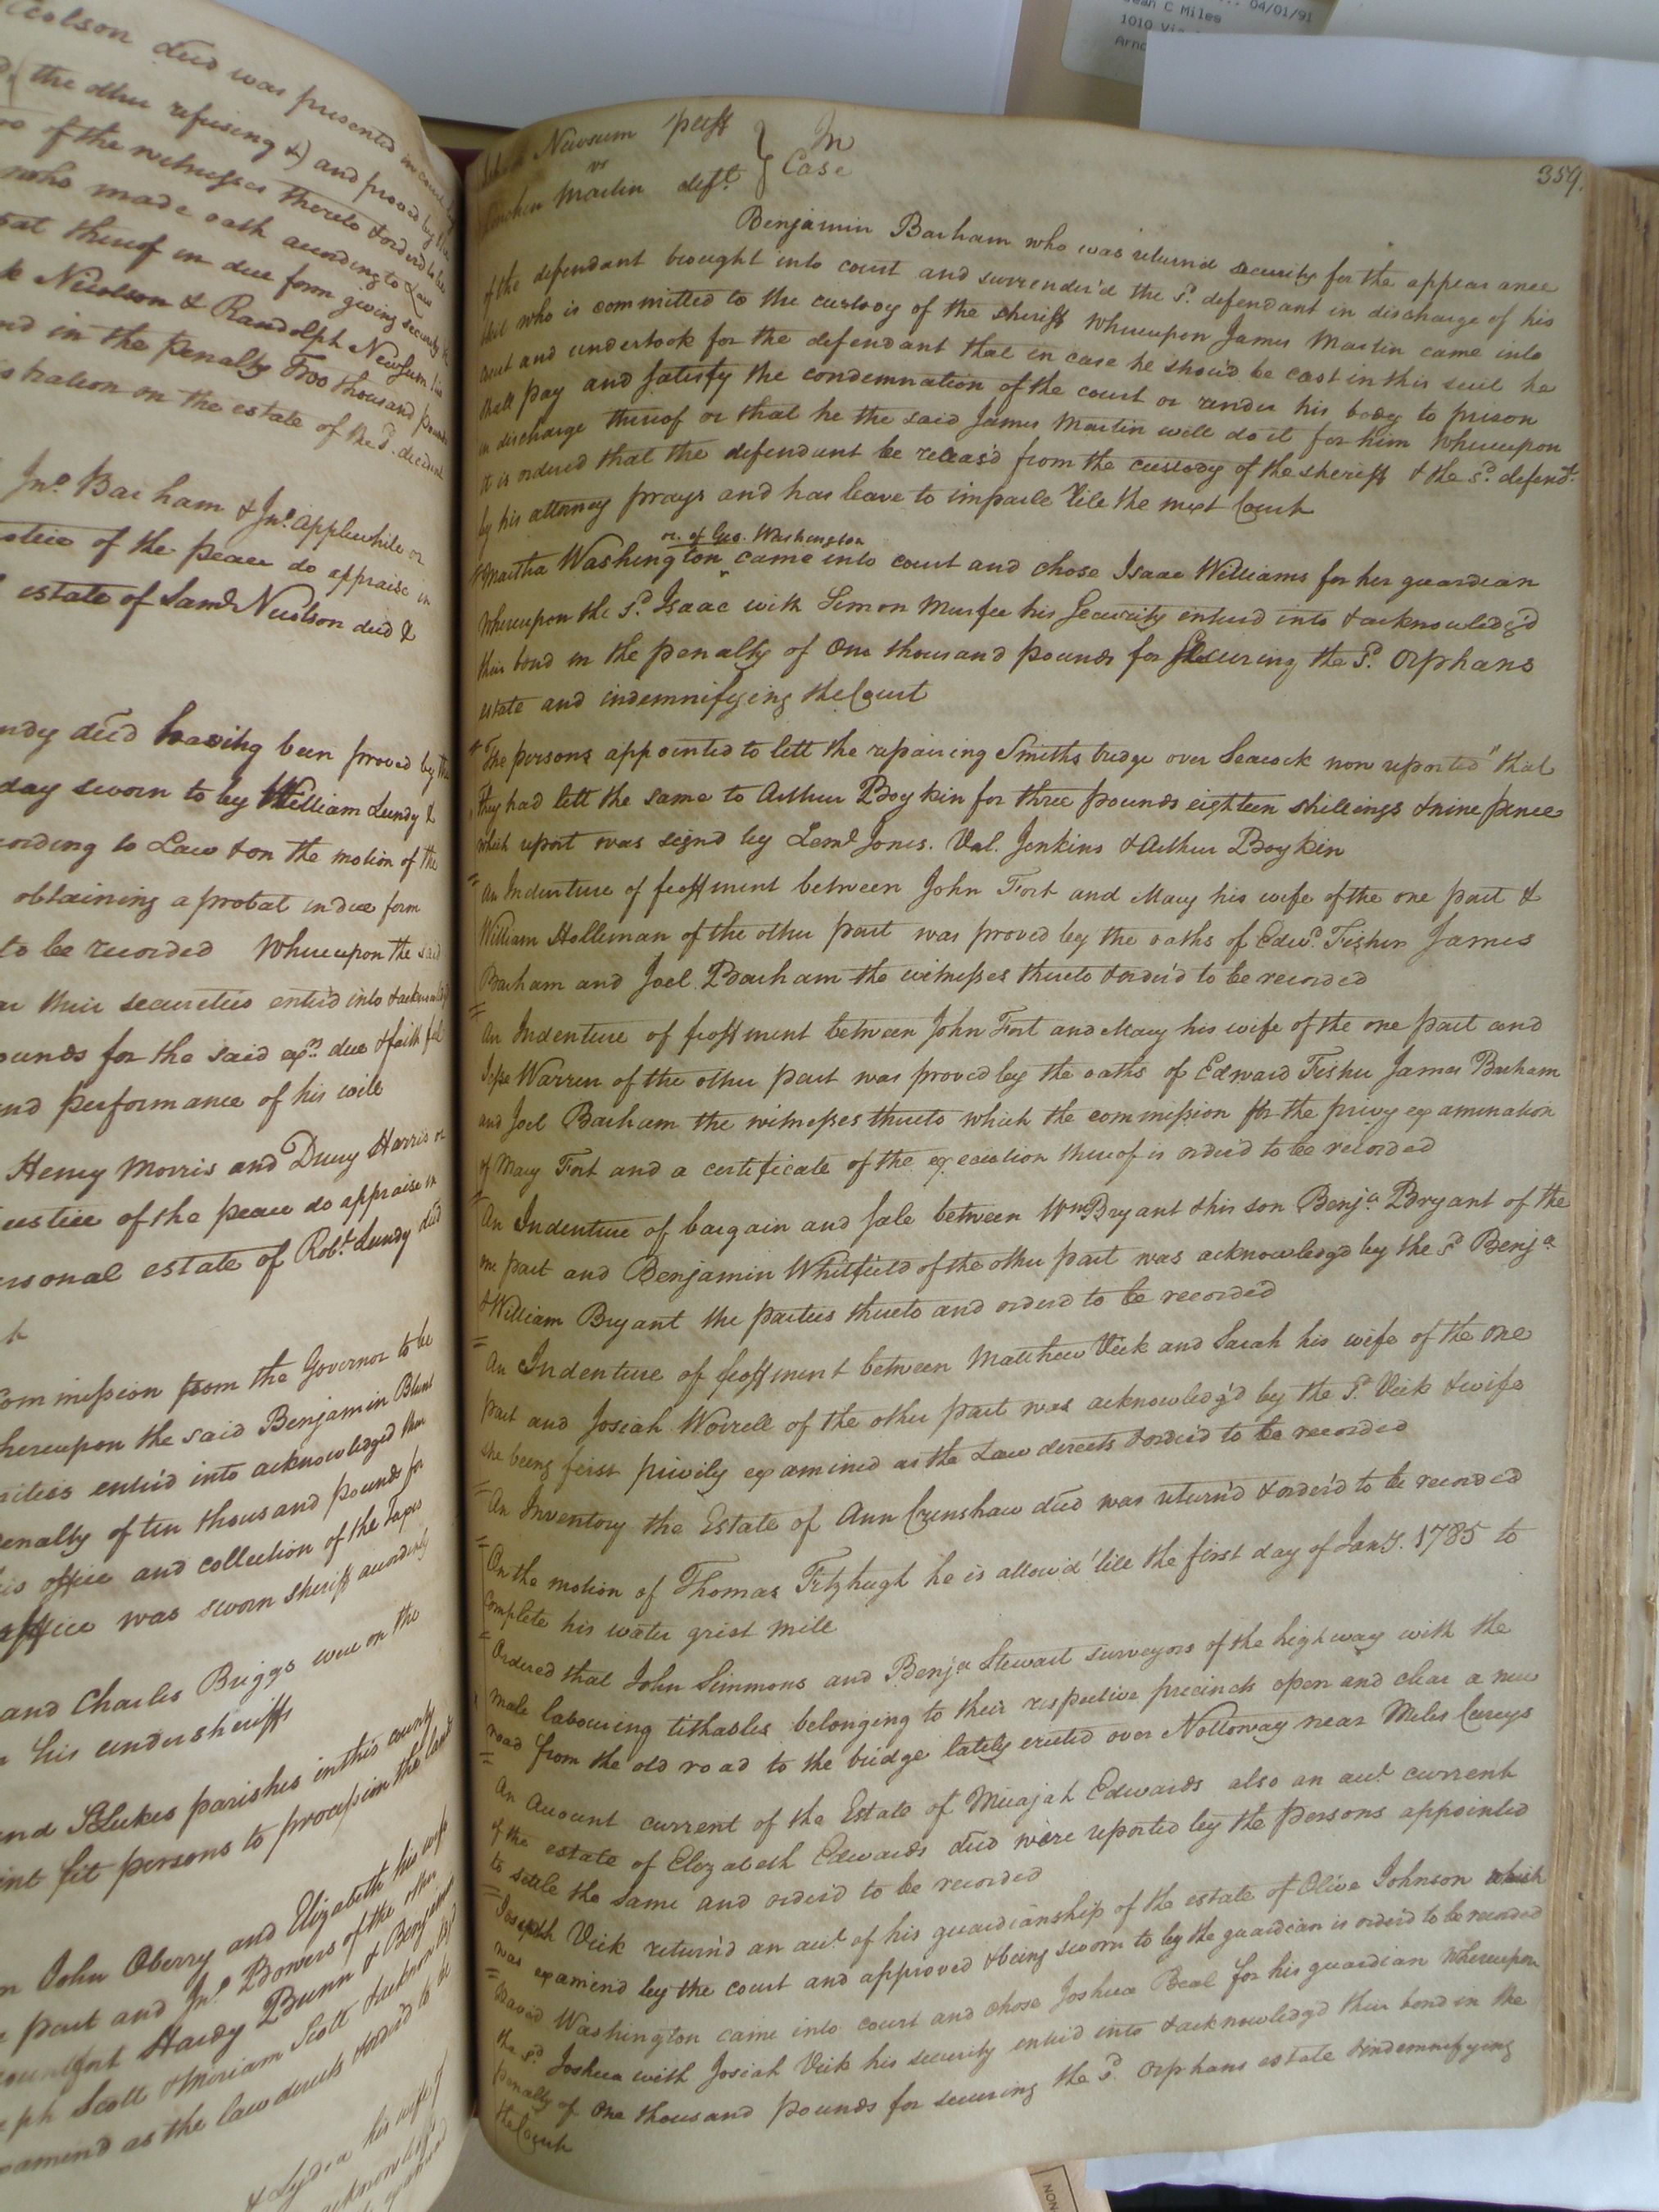 eolson decd was presented in court by
the other refusing &) and proved by the
of the witnesses thereto & orderd to be
who made oath according to Law
thereof in due form giving security
Nicolson & Randolph Newsum his
in the penalty Two thousand pounds
on the estate of the sd. decedent
Jno. Barham & Jno. Applewhite or
of the peace do appraise in
estate of Saml Nicolson decd &
decd having been proved by the
day sworn to by William Lundy &
to Law & on the motion of the
obtaining a probat in due form
to be recorded Whereupon the said
their securities enter'd into & acknowledg'd
for the said exrs due & faithful
and performance of his will
Henry Morris and Drury Harris or
Justice of the peace do appraise in
estate of Robt. Lundy decd
Commission from the Governor to be
the said Benjamin Blunt
enter'd into acknowledged their
Penalty of ten thousand pounds for
office and collection of the Taxes
office was sworn sheriff accordingly
and Charles Briggs were on the
his undersheriffs
and St Lukes parishes in this county
fit persons to procession the lands
John Oberry and Elizabeth his wife
part and Jno. Bowers of the other
Hardy Bunn & Benjamin
Scott & Miriam Scott & acknowledg'd
as the law directs & order'd to be
& Lydia his wife of
04/01/91
Jean C Miles
1010
359.
Newsum plaff
vs
Martin deft.
In
Case
Benjamin Barham who was return'd security for the appearance
of the defendant brought into court and surrender'd the sd. defendant in discharge of his
bail who is committed to the custody of the sheriff Whereupon James Martin came into
court and undertook for the defendant that in case he shou'd be cast in this suit he
shall pay and satisfy the condemnation of the court or render his body to prison
in discharge thereof or that he the said James Martin will do it for him Whereupon
It is ordered that the defendant be releas'd from the custody of the sheriff & the sd. defendt.
by his attorney prays and has leave to imparle 'till the next Court
or. of Geo. Washington
Martha Washington came into court and chose Isaac Williams for her guardian
Whereupon the sd. Isaac with Simon Murfee his Security enterd into & acknowledg'd
their bond in the penalty of One thousand pounds for securing the sd. Orphans
estate and indemnifying the Court
The persons appointed to lett the repairing Smiths bridge over Seacock now reported that
they had lett the same to Arthur Boykin for three pounds eighteen shillings & nine pence
which report was signd by Leml Jones. Val. Jenkins & Arthur Boykin
An Indenture of feoffment between John Fort and Mary his wife of the one part &
William Holleman of the other part was proved by the oaths of Edwd. Fisher James
Barham and Joel Barham the witnesses thereto & order'd to be recorded
An Indenture of feoffment between John Fort and Mary his wife of the one part and
Jesse Warren of the other part was proved by the oaths of Edward Fisher James Barham
and Joel Barham the witnesses thereto which the commission for the privy examination
of Mary Fort and a certificate of the execution thereof is order'd to be recorded
An Indenture of bargain and sale between Wm Bryant & his son Benja. Bryant of the
one part and Benjamin Whitfield of the other part was acknowledg'd by the sd Benja.
& William Bryant the parties thereto and orderd to be recorded
An Indenture of feoffment between Matthew Vick and Sarah his wife of the one
part and Josiah Worrell of the other part was acknowledg'd by the sd. Vick & wife
she being first privily examined as the Law directs & order'd to be recorded
An Inventory the Estate of Ann Crenshaw decd was return'd & order'd to be recorded
On the motion of Thomas Fitzhugh he is allow'd 'till the first day of Jany. 1785 to
complete his water grist mill
Ordered that John Simmons and Benja Stewart surveyors of the highway with the
male labouring tithables belonging to their respective precincts open and clear a new
road from the old road to the bridge lately erected over Nottoway near Miles Careys
An Account current of the Estate of Micajah Edwards also an acct. current
of the estate of Elizabeth Edwards decd were reported by the persons appointed
to settle the same and order'd to be recorded
Joseph Vick return'd an acct. of his guardianship of the estate of Olive Johnson which
was examined by the court and approved & being sworn to by the guardian is order'd to be recorded
David Washington came into court and chose Joshua Beal for his guardian Whereupon
the sd. Joshua with Josiah Vick his security enter'd into & acknowledg'd their bond in the
penalty of One thousand pounds for securing the sd. Orphans estate & indemnifying
the Court
NON